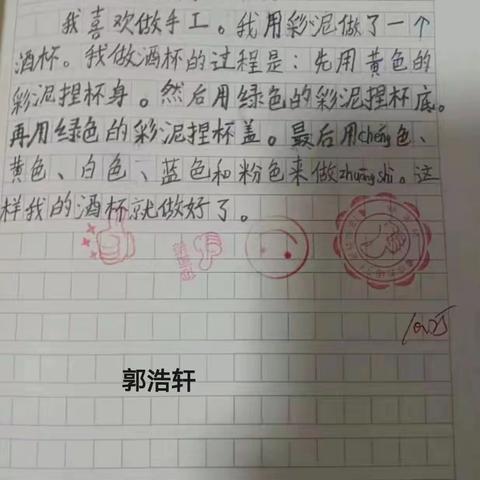 我喜欢做手工。我用彩泥做了一个
酒杯。我做酒杯的过程是：先用黄色的
彩泥捏杯身。然后用绿色的彩泥捏杯底。
再用绿色的彩泥捏杯盖。最后用chéng色、
黄色、白色、蓝色和粉色来做zhuāng shì。这
样我的酒杯就做好了。
郭浩轩